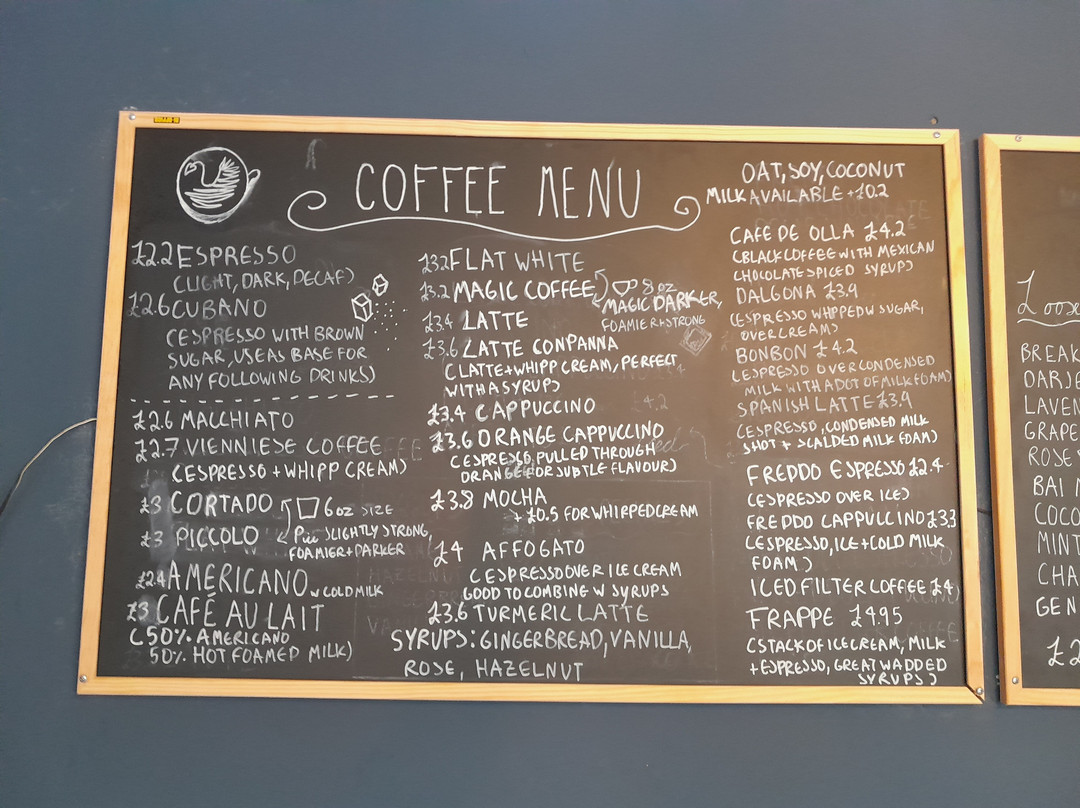 COFFEE MENU
£2.2 ESPRESSO
(LIGHT, DARK, DECAF)
£2.6 CUBANO
(ESPRESSO WITH BROWN
SUGAR, USE AS BASE FOR
ANY FOLLOWING DRINKS)
£2.6 MACCHIATO
£2.7 VIENNIESE COFFEE
(ESPRESSO + WHIPP CREAM)
£3 CORTADO 6 oz SIZE
£3 PICCOLO SLIGHTLY STRONG,
FOAMIER + DARKER
£2.4 AMERICANO W COLD MILK
£3 CAFÉ AU LAIT
(50% AMERICANO
50% HOT FOAMED MILK)
£3.2 FLAT WHITE
£3.2 MAGIC COFFEE 8 oz
MAGIC DARKER,
FOAMIER + STRONG
£3.4 LATTE
£3.6 LATTE CONPANNA
(LATTE + WHIPP CREAM, PERFECT
WITH A SYRUP)
£3.4 CAPPUCCINO
£3.6 ORANGE CAPPUCCINO
(ESPRESSO, PULLED THROUGH
ORANGE FOR SUBTLE FLAVOUR)
£3.8 MOCHA
+ £0.5 FOR WHIPPED CREAM
£4 AFFOGATO
(ESPRESSO OVER ICE CREAM
GOOD TO COMBINE W SYRUPS
£3.6 TURMERIC LATTE
SYRUPS: GINGERBREAD, VANILLA,
ROSE, HAZELNUT
OAT, SOY, COCONUT
MILK AVAILABLE + £0.2
CAFE DE OLLA £4.2
(BLACK COFFEE WITH MEXICAN
CHOCOLATE SPICED SYRUP)
DALGONA £3.9
(ESPRESSO WHPPED W SUGAR,
OVER CREAM)
BONBON £4.2
(ESPRESSO OVER CONDENSED
MILK WITH A DOT OF MILK FOAM)
SPANISH LATTE £3.9
(ESPRESSO, CONDENSED MILK
SHOT + SCALDED MILK FOAM)
FREDDO ESPRESSO £2.4
(ESPRESSO OVER ICE)
FREDDO CAPPUCCINO £3.3
(ESPRESSO, ICE + COLD MILK
FOAM)
ICED FILTER COFFEE £4
FRAPPE £4.95
(STACK OF ICECREAM, MILK
+ ESPRESSO, GREAT W ADDED
SYRUPS)
Loose
BREAK
DARJE
LAVEN
GRAPE
ROSE
BAI
COCO
MINT
CHA
GEN
£2